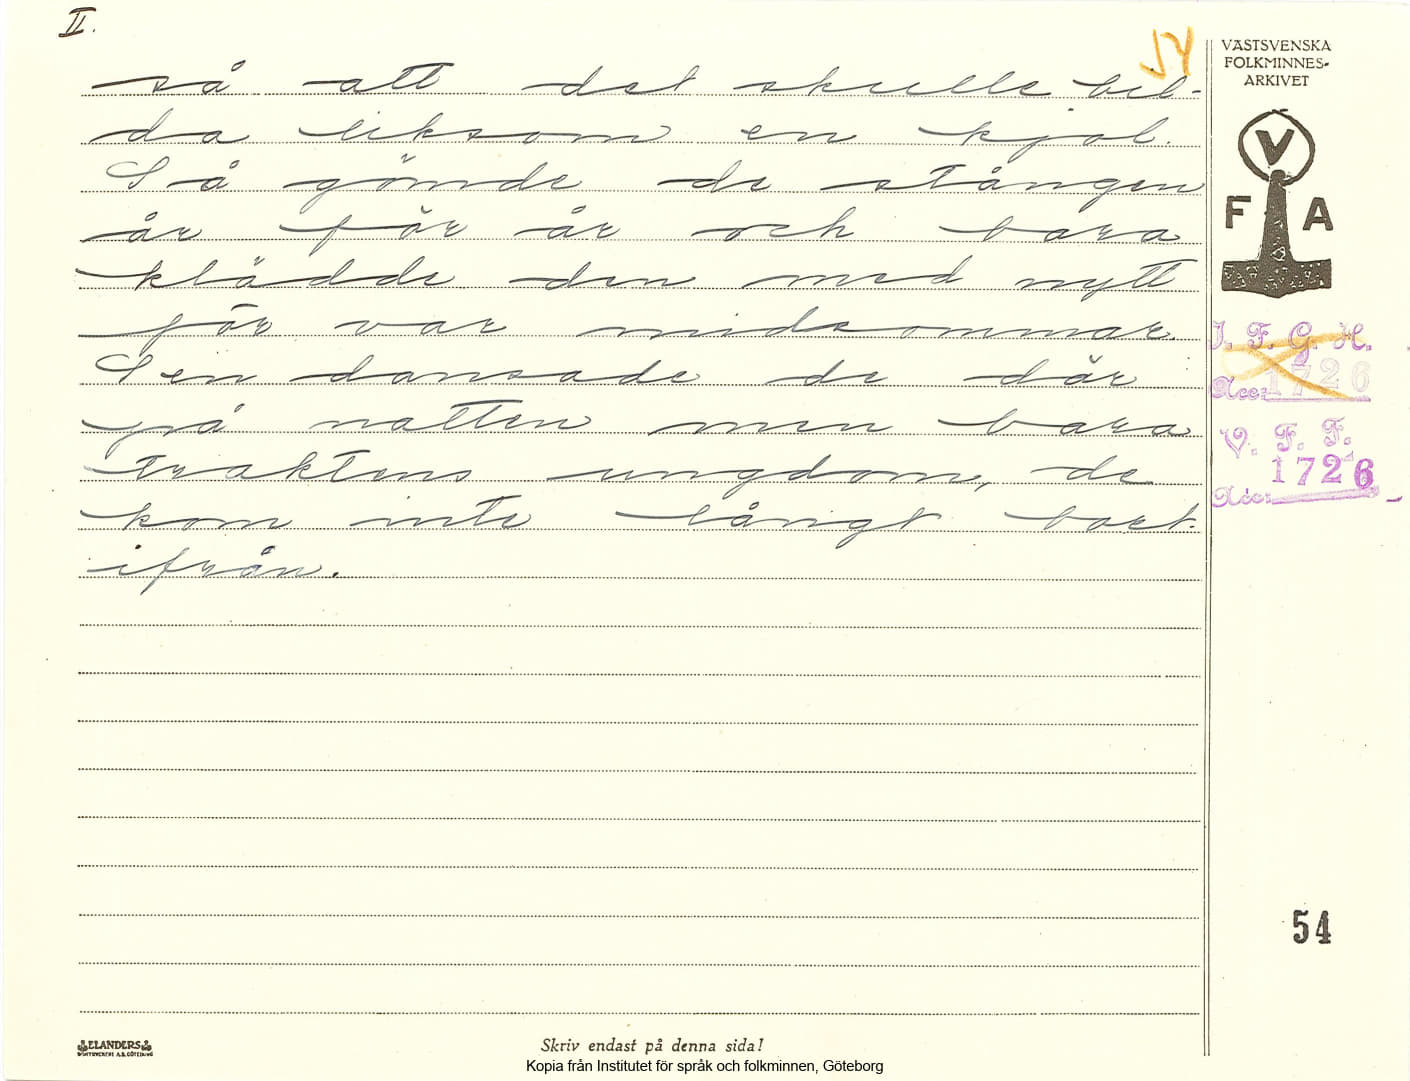 II.
54
så att det skulle bil-
da liksom en kjol.
Så gömde de stången
år för år och bara
klädde den med nytt
för var midsommar.
Sen dansade de där
på natten men bara
traktens ungdom, de
kom inte långt bort-
ifrån.
VÄSTSVENSKA
FOLKMINNES-
ARKIVET
V
F A
I. F. G. H.
Acc: 1726
V. F. F.
1726
Acc:
54
ELANDERS
Skriv endast på denna sida!
Kopia från Institutet för språk och folkminnen, Göteborg